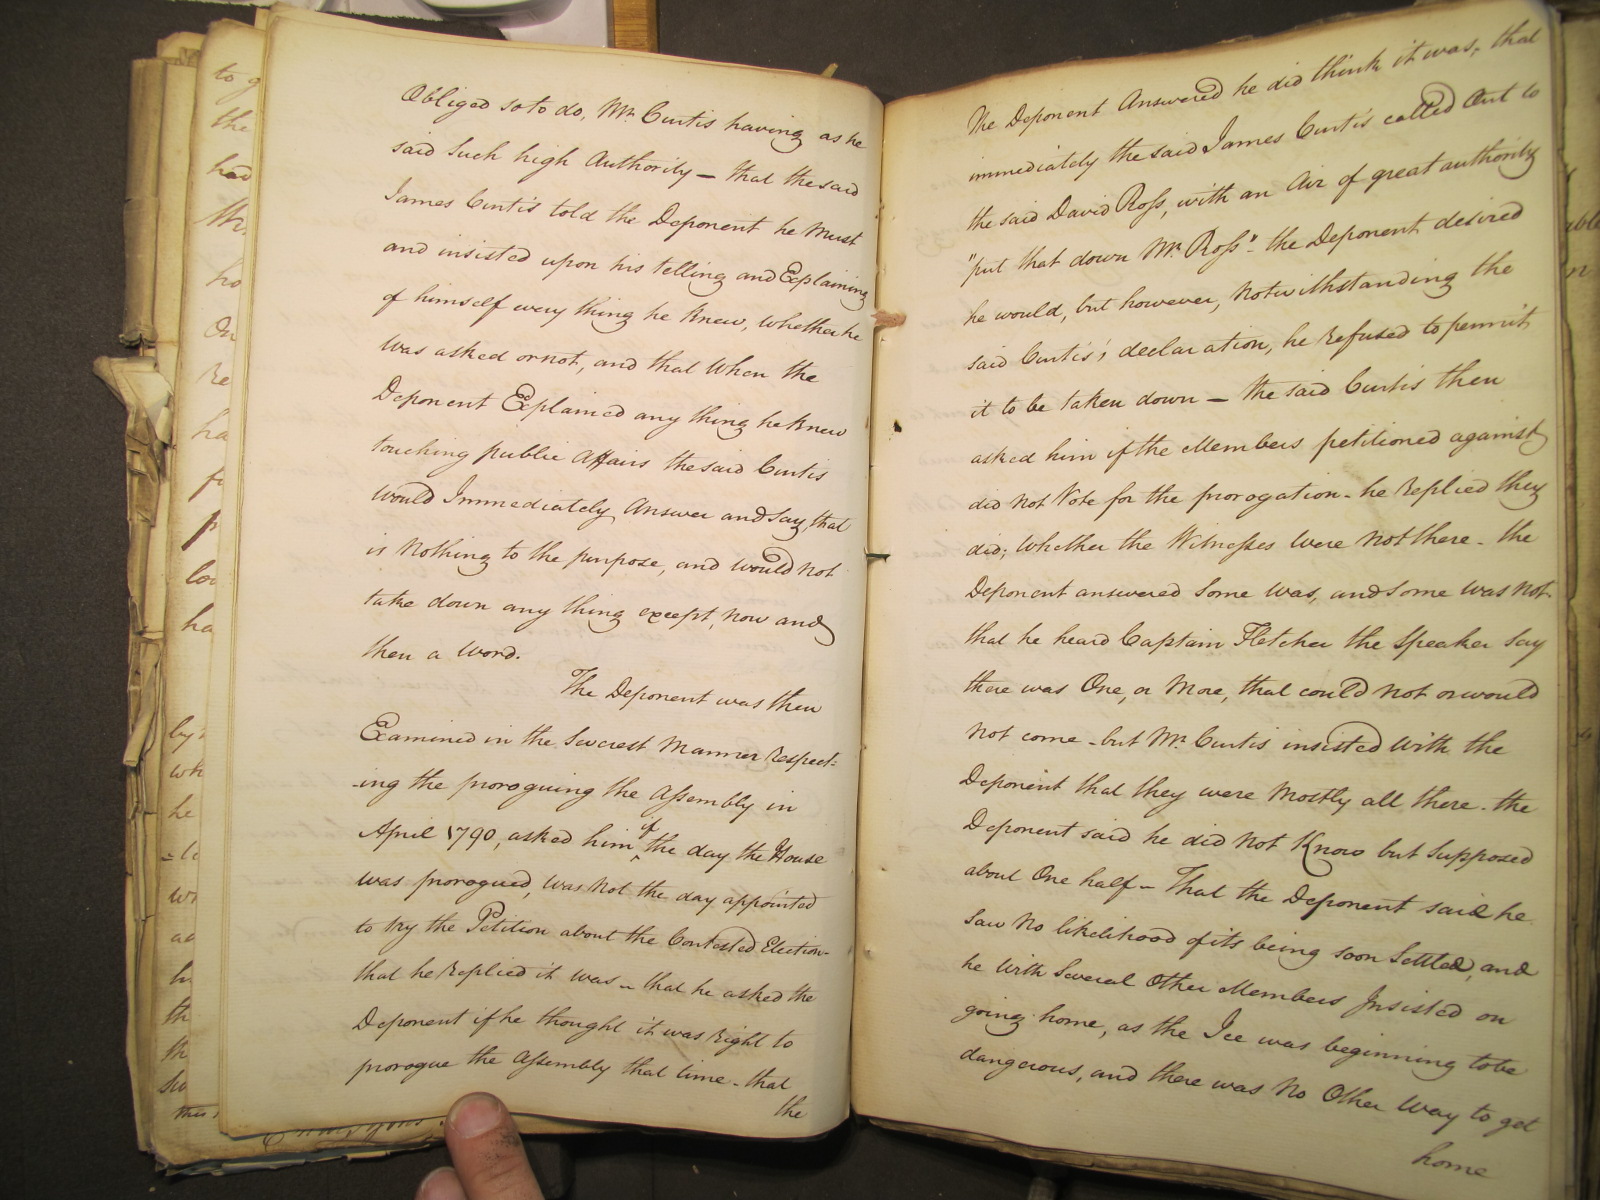 Obliged so to do, Mr. Curtis having as he
said Such high Authority — that the said
James Curtis told the Deponent he Must
and insisted upon his telling and Explaining
of himself every thing he Knew, whether he
was asked or not, and that When the
Deponent Explained any thing he Knew
touching public Affairs the said Curtis
would Immediately Answer and Say, that
is Nothing to the purpose, and would not
take down any thing except, now and
then a Word.
The Deponent was then
Examined in the Severest Manner respect-
-ing the proroguing the Assembly in
April 1790, asked him if the day the House
was prorogued, was Not the day appointed
to try the Petition about the Contested Election-
that he replied it was — that he asked the
Deponent if he thought it was Right to
prorogue the Assembly that time - that
the
The Deponent Answered he did think it was, that
immediately the said James Curtis called Out to
the said David Ross, with an Air of great authority
"put that down Mr. Ross" - the Deponent desired
he would, but however, Notwithstanding the
said Curtis's declaration, he refused to permit
it to be taken down — the said Curtis then
asked him if the Members petitioned against
did not Vote for the prorogation - he replied they
did; Whether the Witnesses were not there - the
Deponent answered Some was, and Some was not-
that he heard Captain Fletcher the Speaker Say
there was One, or More, that could not or would
Not come - but Mr. Curtis insisted With the
Deponent that they were Mostly all there - the
Deponent said he did Not Know but Supposed
about One half - That the Deponent said he
Saw No likelihood of its being soon Settled, and
he With Several Other Members Insisted on
going home, as the Ice was beginning to be
dangerous, and there was No Other Way to get
home
to
the
had
ho
ha
lo
ha
by
wh
he
th
th